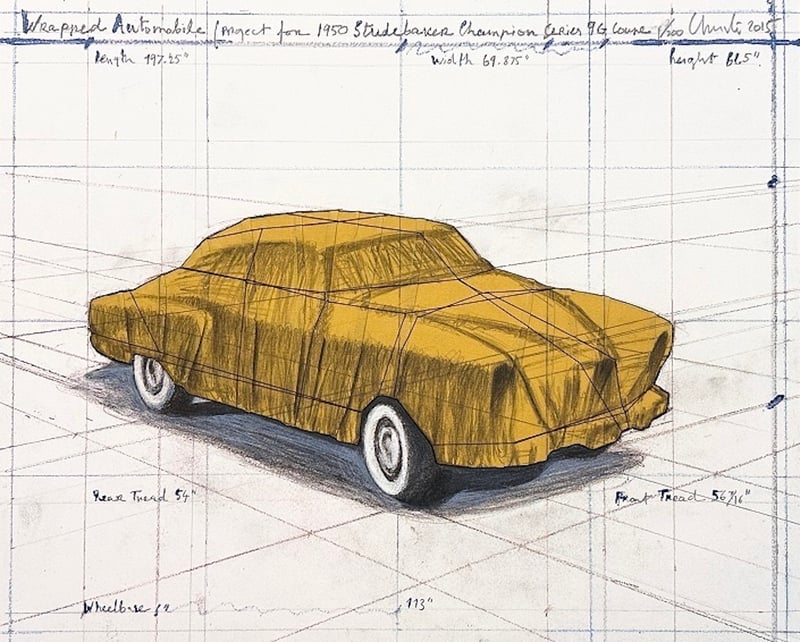 Wrapped Automobile (project for 1950 Studebaker Champion Series 9G Coupe /200 Christo 2015
length 197.25" width 69.875" height 61.5"
Rear Tread 54" Front Tread 56 7/16"
Wheelbase 113"